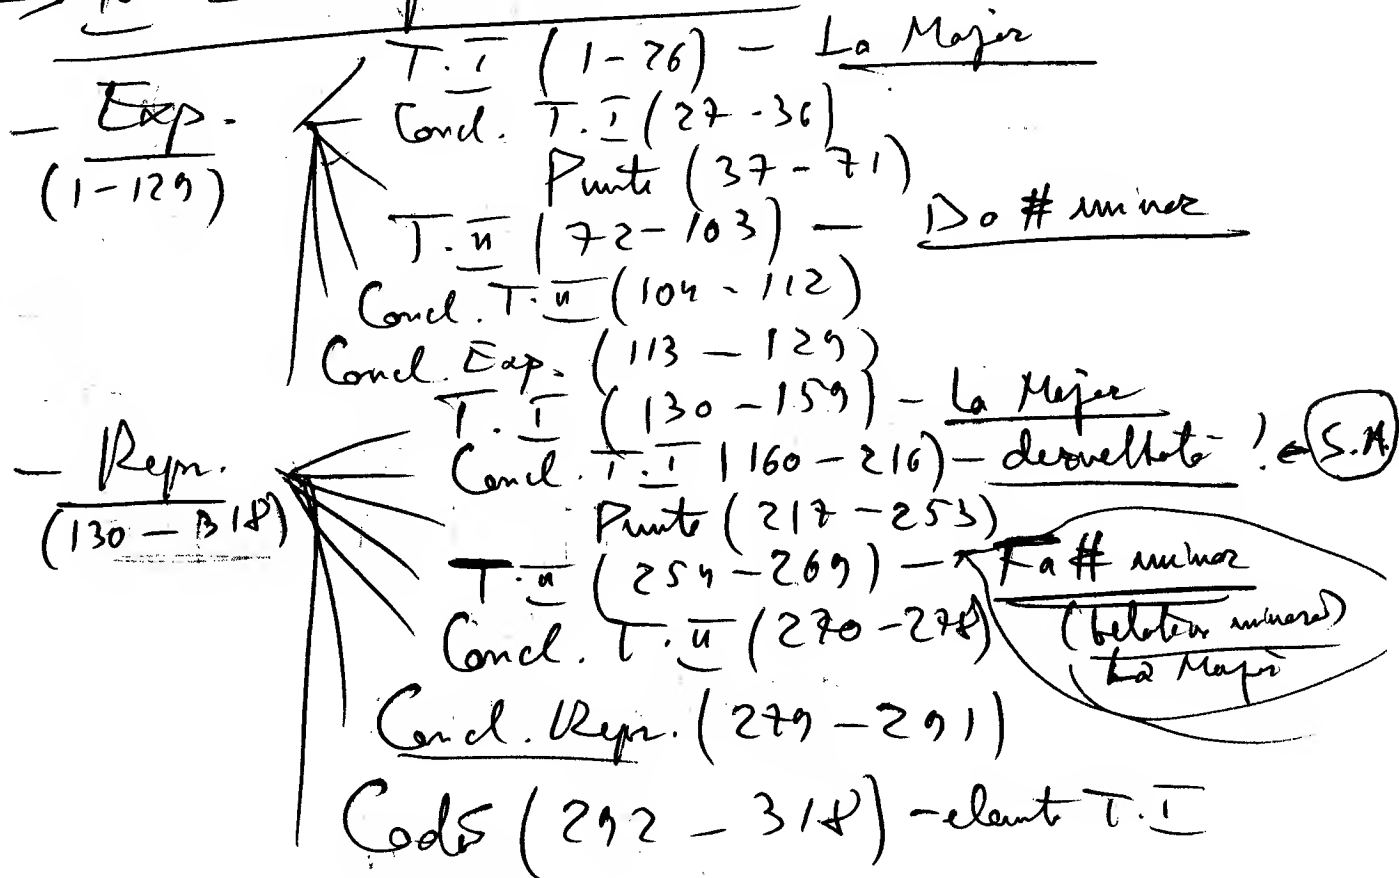 T. I (1-26) - La Major
- Exp. (1-129)
Concl. T. I (27-36)
Punte (37-71)
T. II (72-103) - Do # minor
Concl. T. II (104-112)
Concl. Exp. (113-129)
T. I (130-159) - La Major
- Repr. (130-318)
Concl. T. I (160-216) - dezvoltată ! ← S.A.
Punte (217-253)
T. II (254-269) - Fa # minor
(relativa minoră)
La Major
Concl. T. II (270-278)
Concl. Repr. (279-291)
Codă (292-318) - elemte T. I